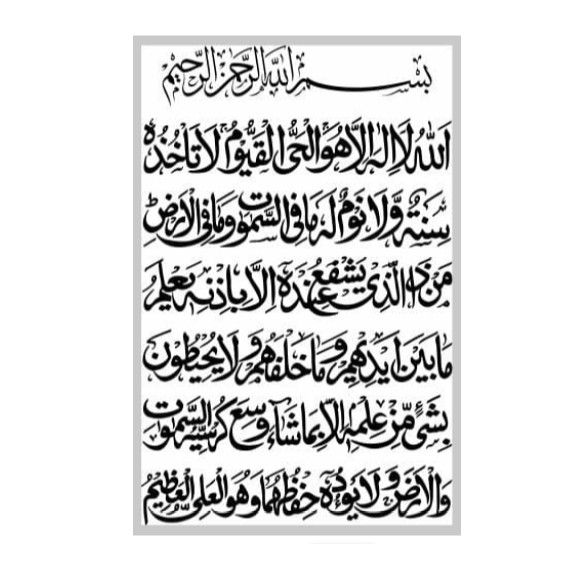 بسم الله الرحمن الرحيم
الله لا اله الا هو الحي القيوم لا تاخذه
سنة ولا نوم له ما في السموت وما في الارض
من ذا الذي يشفع عنده الا باذنه يعلم
ما بين ايديهم وما خلفهم ولا يحيطون
بشيء من علمه الا بما شاء وسع كرسيه السموت
والارض ولا يوده حفظهما وهو العلي العظيم